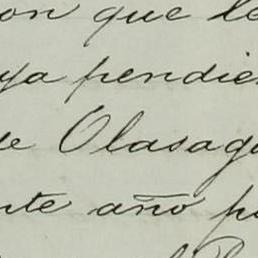 on que le
ya pendie
de Olasag
nte año p